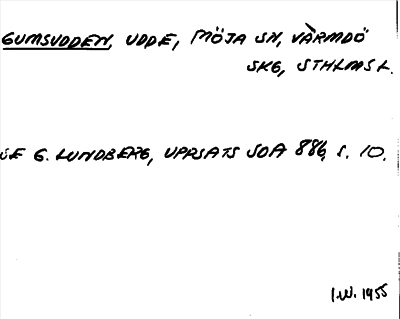 GUMSUDDEN, UDDE, MÖJA SN, VÄRMDÖ
SKG, STHLMS L.
SE G. LUNDBERG, UPPSATS SOA 886, S. 10.
I.W. 1955